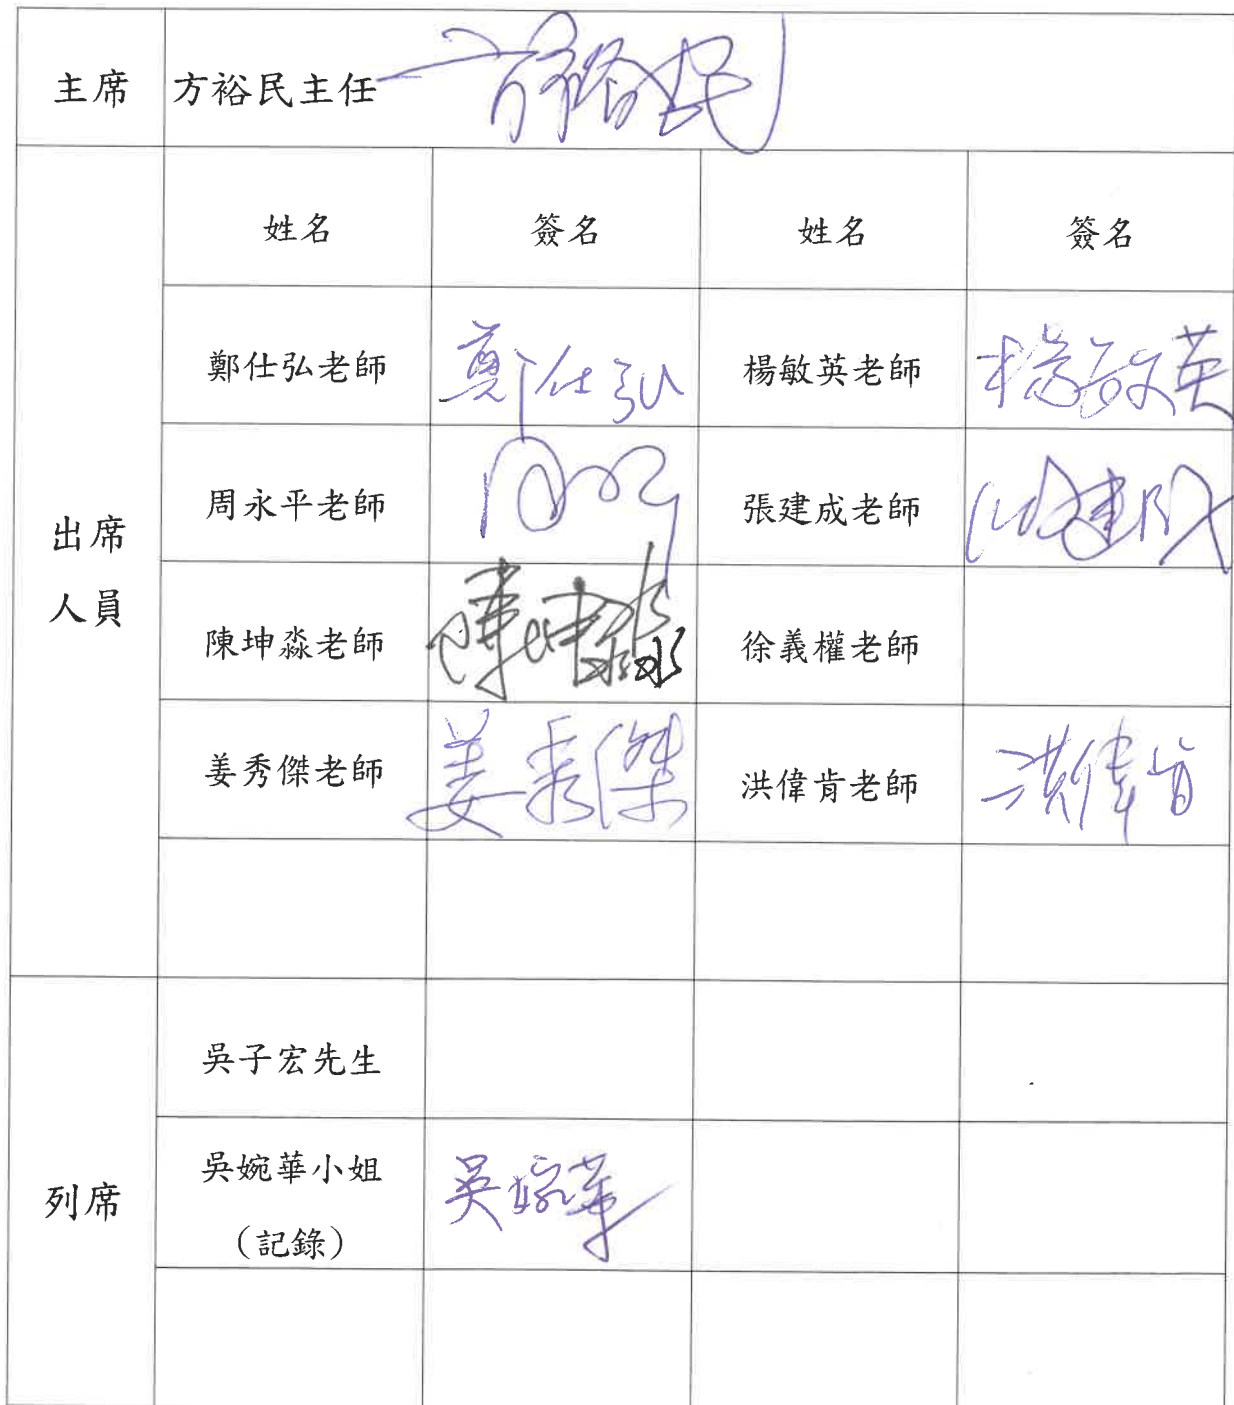 主席 方裕民主任 方裕民
姓名 簽名 姓名 簽名
鄭仕弘老師 鄭仕弘 楊敏英老師 楊敏英
周永平老師 張建成老師 張建成
出席
人員
陳坤淼老師 陳坤淼 徐義權老師
姜秀傑老師 姜秀傑 洪偉肯老師 洪偉肯
吳子宏先生
列席
吳婉華小姐 吳婉華
（記錄）